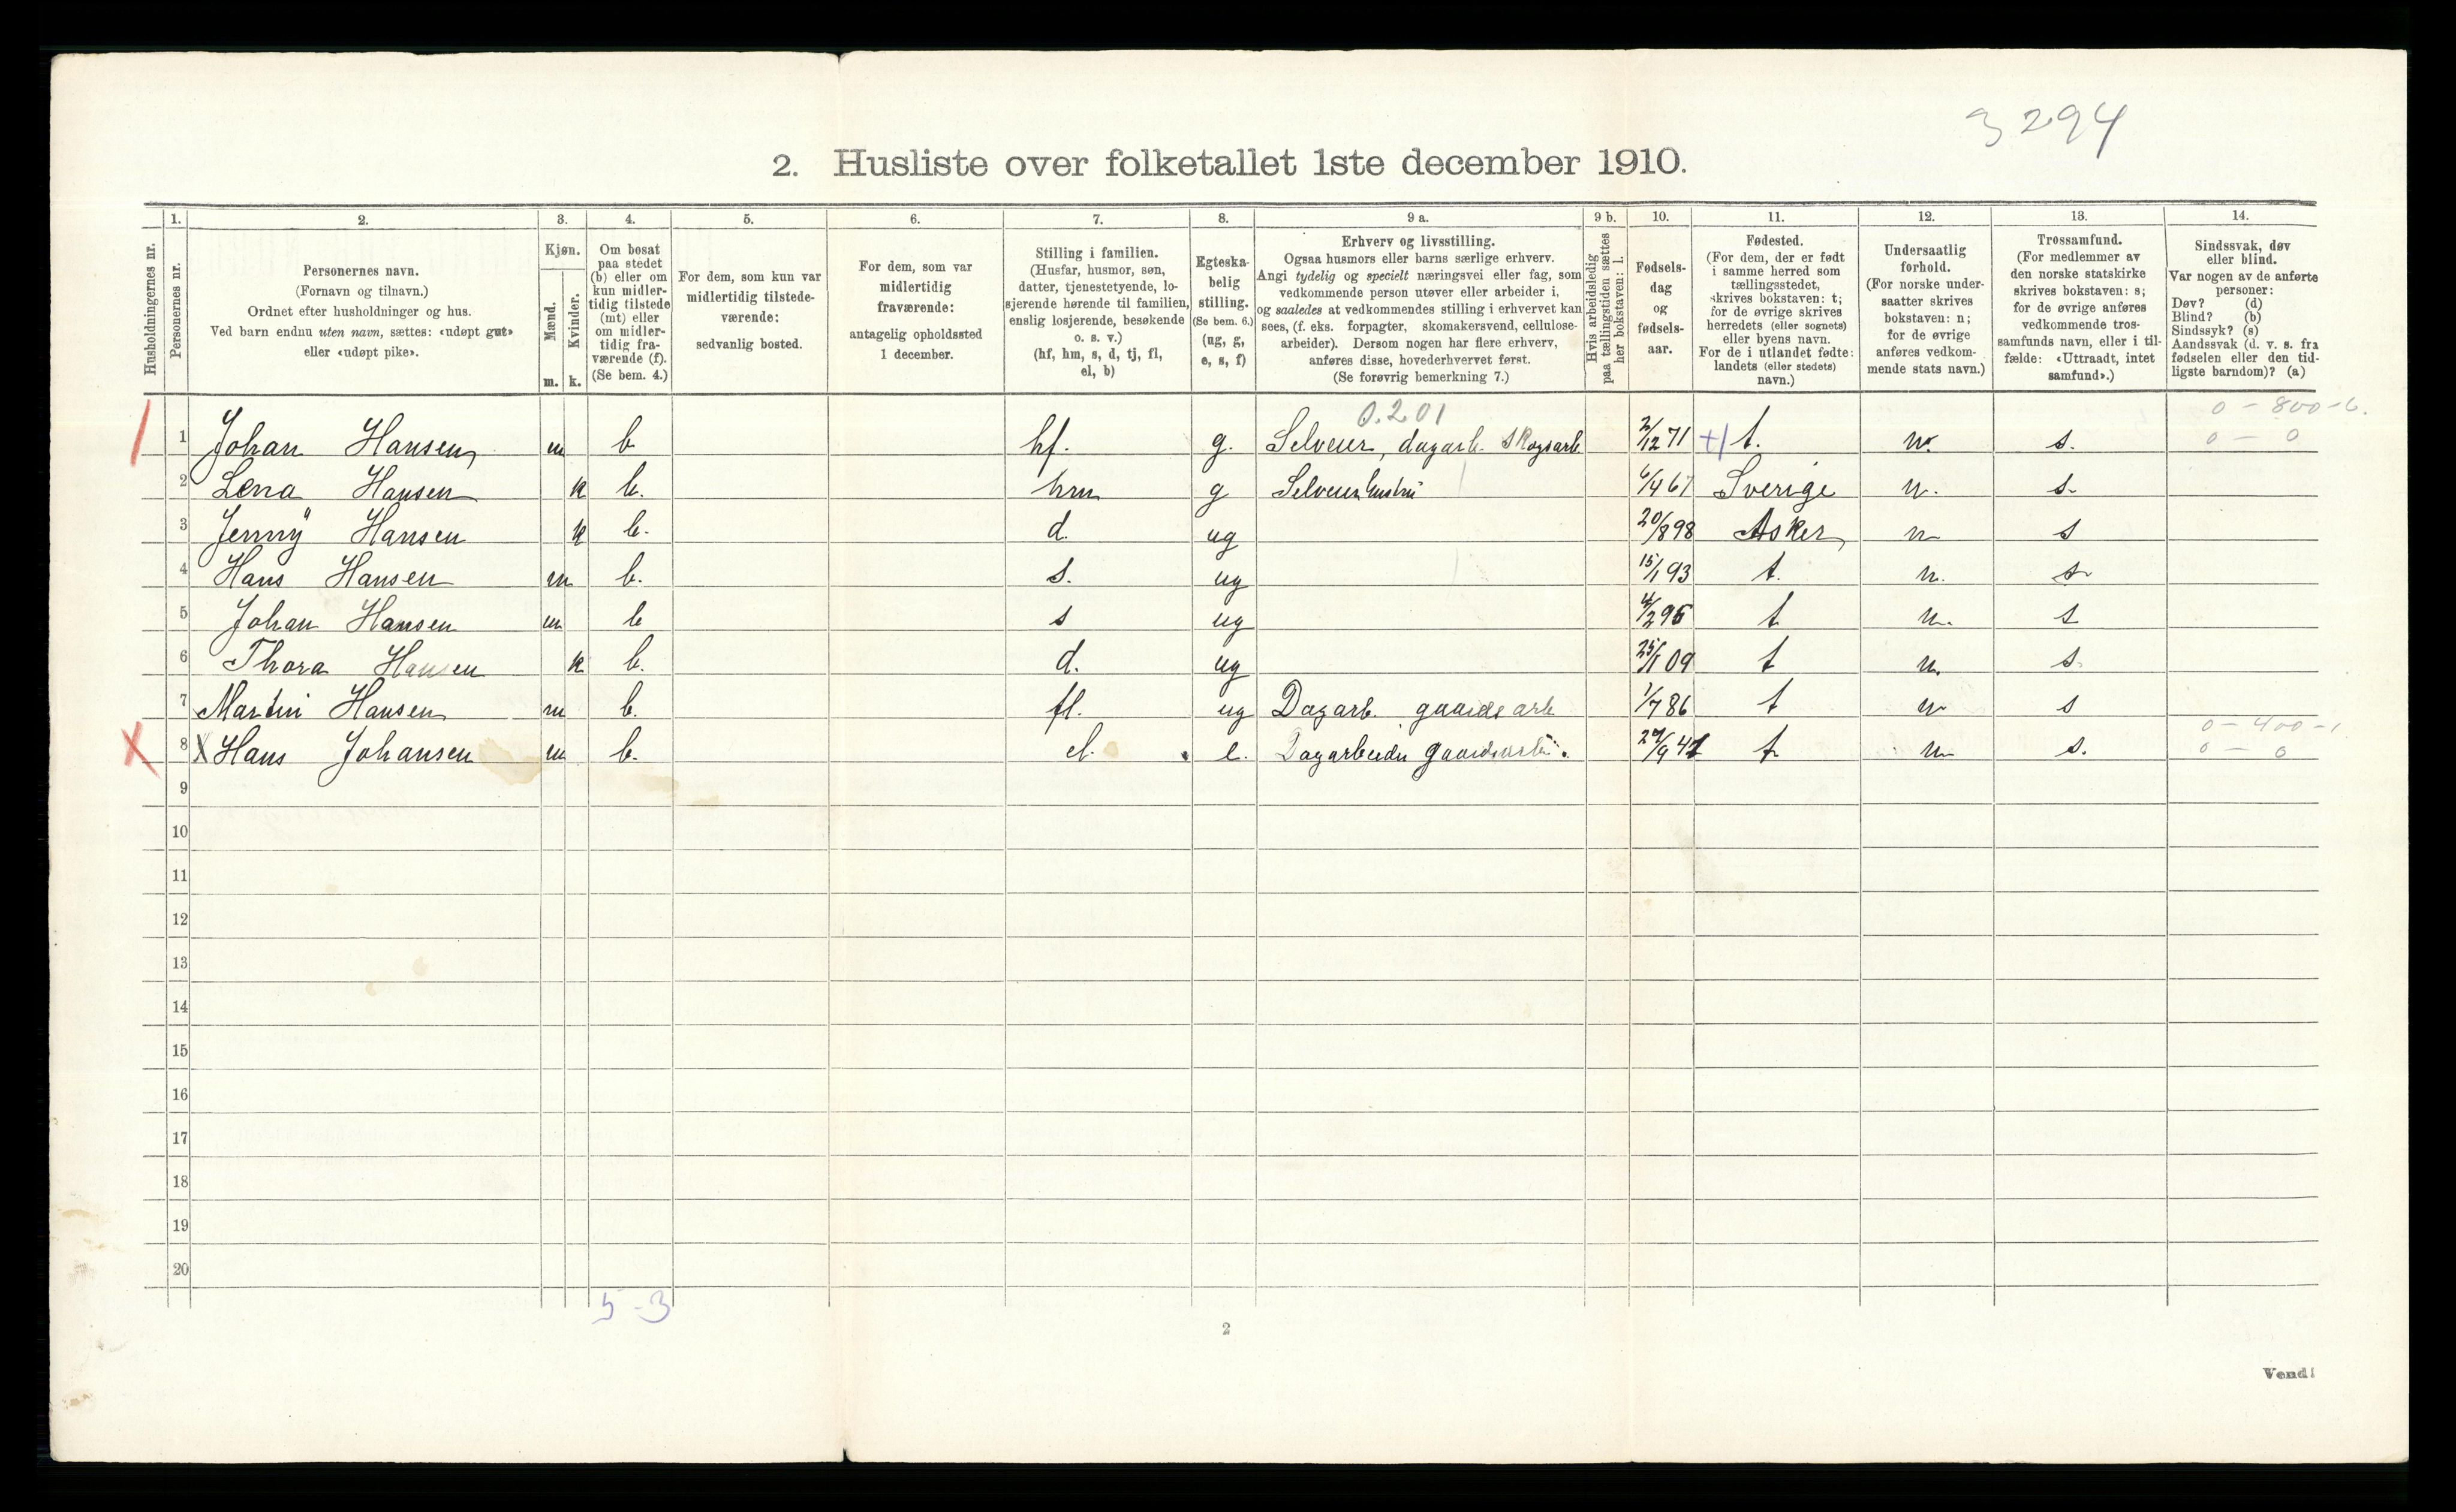 3294
2. Husliste over folketallet 1ste december 1910.
Husholdningernes nr.
1.
Personernes nr.
2.
Personernes navn.
(Fornavn og tilnavn.)
Ordnet efter husholdninger og hus.
Ved barn endnu uten navn, sættes: «udøpt gut»
eller «udøpt pike».
3.
Kjøn.
Mænd.
Kvinder.
m. k.
4.
Om bosat
paa stedet
(b) eller om
kun midler-
tidig tilstede
(mt) eller
om midler-
tidig fra-
værende (f).
(Se bem. 4.)
5.
For dem, som kun var
midlertidig tilstede-
værende:
sedvanlig bosted.
6.
For dem, som var
midlertidig
fraværende:
antagelig opholdssted
1 december.
7.
Stilling i familien.
(Husfar, husmor, søn,
datter, tjenestetyende, lo-
sjerende hørende til familien,
enslig losjerende, besøkende
o. s. v.)
(hf, hm, s, d, tj, fl,
el, b)
8.
Egteska-
belig
stilling.
(Se bem. 6.)
(ug, g,
e, s, f)
9 a.
Erhverv og livsstilling.
Ogsaa husmors eller barns særlige erhverv.
Angi tydelig og specielt næringsvei eller fag, som
vedkommende person utøver eller arbeider i,
og saaledes at vedkommendes stilling i erhvervet kan
sees, (f. eks. forpagter, skomakersvend, cellulose-
arbeider). Dersom nogen har flere erhverv,
anføres disse, hovederhvervet først.
(Se forøvrig bemerkning 7.)
9 b.
Hvis arbeidsledig
paa tællingstiden sættes
her bokstaven: l.
10.
Fødsels-
dag
og
fødsels-
aar.
11.
Fødested.
(For dem, der er født
i samme herred som
tællingsstedet,
skrives bokstaven: t;
for de øvrige skrives
herredets (eller sognets)
eller byens navn.
For de i utlandet fødte:
landets (eller stedets)
navn.)
12.
Undersaatlig
forhold.
(For norske under-
saatter skrives
bokstaven: n;
for de øvrige
anføres vedkom-
mende stats navn.)
13.
Trossamfund.
(For medlemmer av
den norske statskirke
skrives bokstaven: s;
for de øvrige anføres
vedkommende tros-
samfunds navn, eller i til-
fælde: «Uttraadt, intet
samfund».)
14.
Sindssvak, døv
eller blind.
Var nogen av de anførte
personer:
Døv? (d)
Blind? (b)
Sindssyk? (s)
Aandssvak (d. v. s. fra
fødselen eller den tid-
ligste barndom)? (a)
0.201 0 – 800 – 6.
1 Johan Hansen m b hf. g. Selveier, dagarb. Skogsarb 2/12 71 t. n. s. 0 – 0
2 Lena Hansen k b. hm g Selveierhustru 6/4 67 Sverige n. s.
3 Jenny Hansen k b. d. ug 20/8 98 Asker n s
4 Hans Hansen m b. s. ug 15/1 93 t. n. s.
5 Johan Hansen m b s ug 4/2 95 t n. s
6 Thora Hansen k b. d. ug 25/1 09 t n. s.
7 Martin Hansen m b. fl. ug Dagarb. gaardsarb 1/7 86 t n s
0 – 400 – 1
8 X Hans Johansen m b. el. e. Dagarbeider gaardsarb. 27/9 41 t n s. 0 – 0
9
10
11
12
13
14
15
16
17
18
19
20
5 – 3
2
Vend!